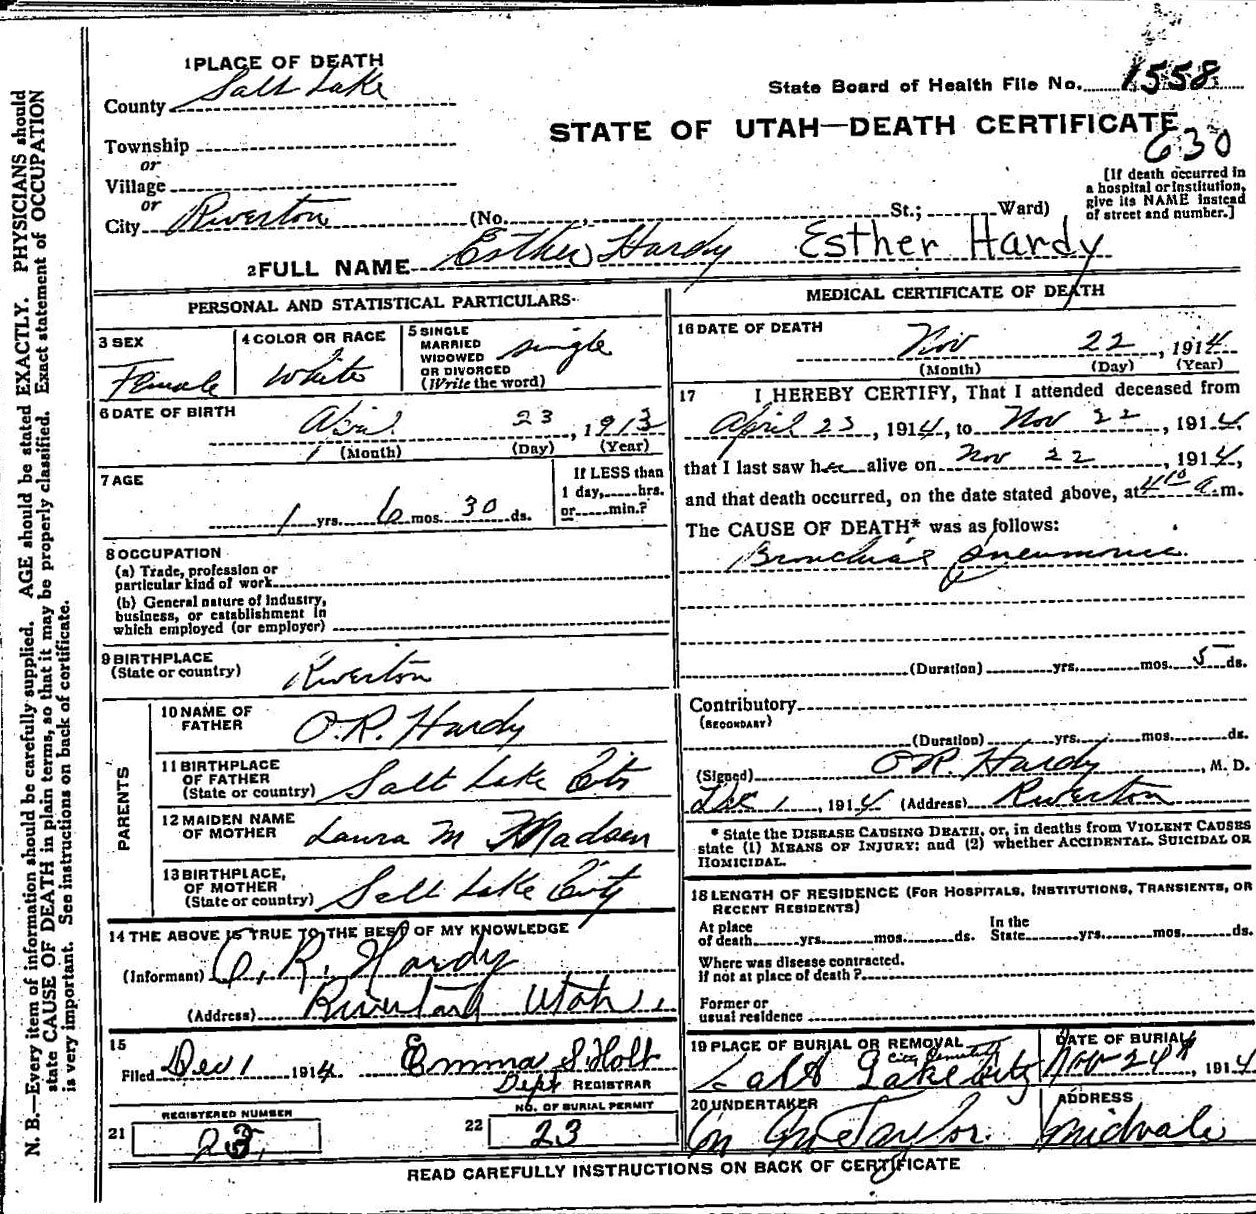 1 PLACE OF DEATH
County Salt Lake
State Board of Health File No. 1558
STATE OF UTAH—DEATH CERTIFICATE
630
Township
or
Village
or
City Riverton (No. , St.; Ward)
[If death occurred in a hospital or institution, give its NAME instead of street and number.]
2 FULL NAME Esther Hardy Esther Hardy
PERSONAL AND STATISTICAL PARTICULARS
3 SEX
Female
4 COLOR OR RACE
White
5 SINGLE
MARRIED
WIDOWED
OR DIVORCED
(Write the word)
single
6 DATE OF BIRTH
April 23, 1913
(Month) (Day) (Year)
7 AGE
1 yrs. 6 mos. 30 ds.
If LESS than
1 day, hrs.
or min.?
8 OCCUPATION
(a) Trade, profession or
particular kind of work
(b) General nature of industry,
business, or establishment in
which employed (or employer)
9 BIRTHPLACE
(State or country) Riverton
PARENTS
10 NAME OF
FATHER O.R. Hardy
11 BIRTHPLACE
OF FATHER
(State or country) Salt Lake City
12 MAIDEN NAME
OF MOTHER Laura M Madsen
13 BIRTHPLACE,
OF MOTHER
(State or country) Salt Lake City
14 THE ABOVE IS TRUE TO THE BEST OF MY KNOWLEDGE
(Informant) O. R. Hardy
(Address) Riverton Utah
15
Filed Dec 1 1914. Emma S Holt
Dept REGISTRAR
REGISTERED NUMBER
21 23
NO. OF BURIAL PERMIT
22 23
MEDICAL CERTIFICATE OF DEATH
16 DATE OF DEATH
Nov 22, 1914
(Month) (Day) (Year)
17 I HEREBY CERTIFY, That I attended deceased from
April 23, 1914, to Nov 22, 1914.
that I last saw her alive on Nov 22, 1914,
and that death occurred, on the date stated above, at 4 10 a.m.
The CAUSE OF DEATH* was as follows:
Bronchial pneumonia
(Duration) yrs. mos. 5 ds.
Contributory
(SECONDARY)
(Duration) yrs. mos. ds.
(Signed) O.R. Hardy, M. D.
Dec 1, 1914 (Address) Riverton
* State the DISEASE CAUSING DEATH, or, in deaths from VIOLENT CAUSES
state (1) MEANS OF INJURY; and (2) whether ACCIDENTAL, SUICIDAL OR
HOMICIDAL.
18 LENGTH OF RESIDENCE (FOR HOSPITALS, INSTITUTIONS, TRANSIENTS, OR
RECENT RESIDENTS)
At place
of death yrs. mos. ds.
In the
State yrs. mos. ds.
Where was disease contracted.
If not at place of death?
Former or
usual residence
19 PLACE OF BURIAL OR REMOVAL
City Cemetery
Salt Lake City
DATE OF BURIAL
Nov 24th, 1914
20 UNDERTAKER
Taylor.
ADDRESS
Midvale
READ CAREFULLY INSTRUCTIONS ON BACK OF CERTIFICATE
N. B.—Every item of information should be carefully supplied. AGE should be stated EXACTLY. PHYSICIANS should
state CAUSE OF DEATH in plain terms, so that it may be properly classified. Exact statement of OCCUPATION
is very important. See instructions on back of certificate.